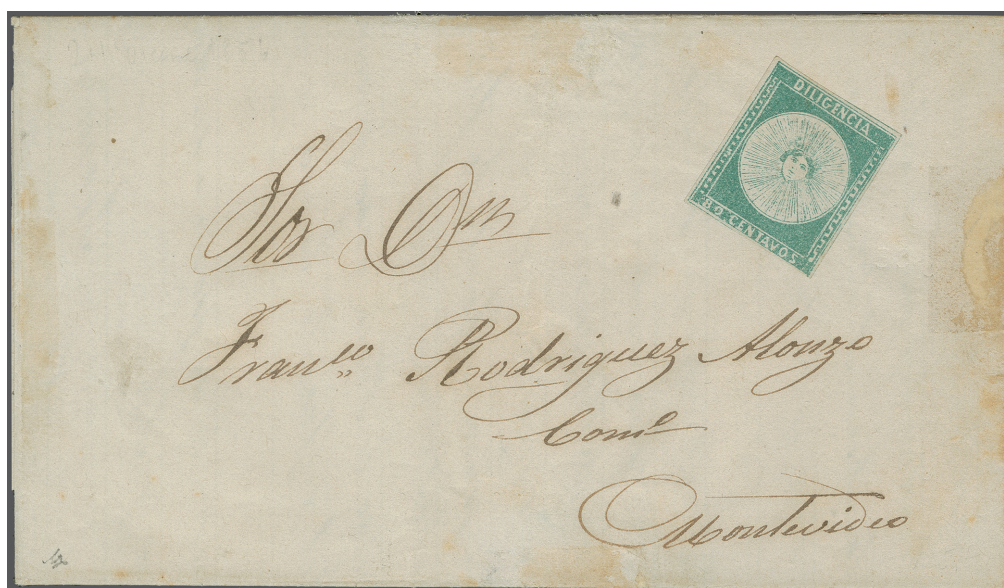 DILIGENCIA
82 CENTAVOS
Sor Dn
Franco Rodriguez Alonzo
Como
Montevideo